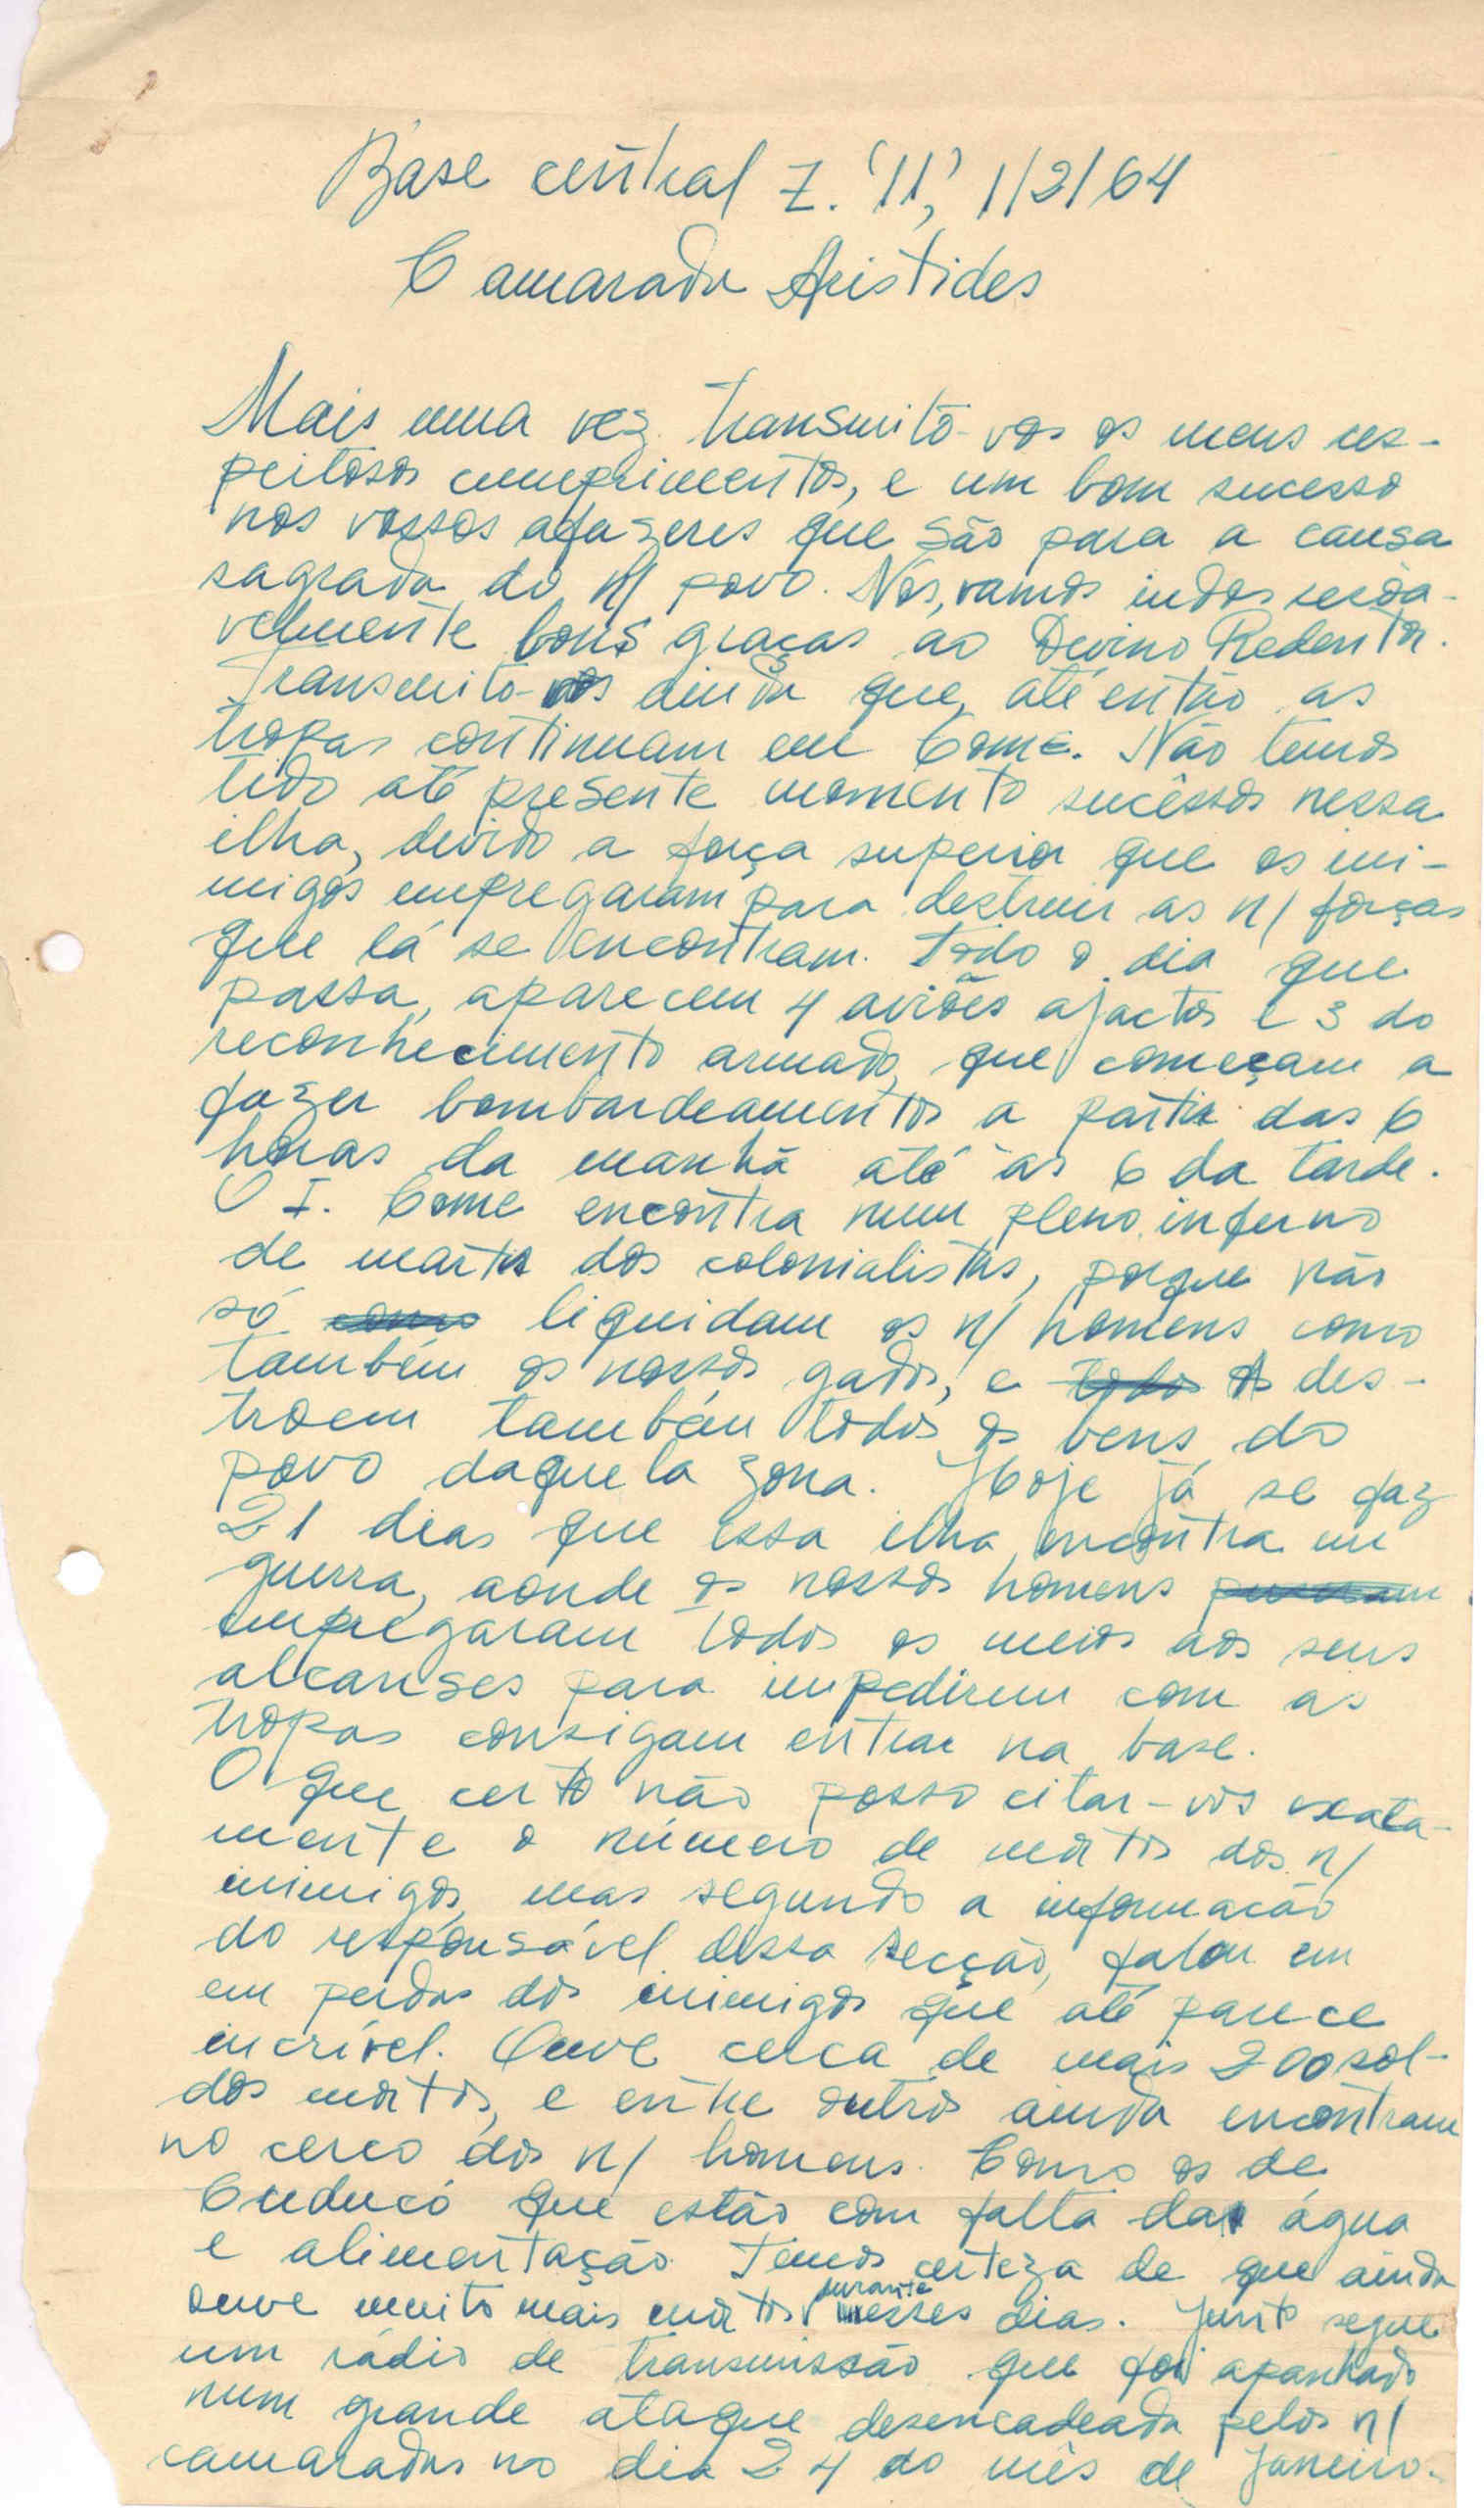 Base central Z. "11", 1/2/64
Camarada Aristides
Mais uma vez transmito-vos os meus res-
peitosos cumprimentos, e um bom sucesso
nos vossos afazeres que são para a causa
sagrada do n/ povo. Nós, vamos indos
velmente bons graças ao Divino Redentor.
Transmito-vos ainda que, até então as
tropas continuam em Como. Não temos
tido até presente momento sucêssos nessa
ilha, devido a força superior que os ini-
migos empregaram para destruir as n/ forças
que lá se encontram. Todo o dia que
passa, aparecem 4 aviões a jactos e 3 do
reconhecimento armado, que começam a
fazer bombardeamentos a partir das 6
horas da manhã até às 6 da tarde.
O I. Come encontra num pleno inferno
de martir dos colonialistas, porque não
só como liquidam os n/ homens como
também os nossos gados, e todos os des-
troem também todos os bens do
povo daquela zona. Hoje já se faz
21 dias que essa ilha encontra em
guerra, aonde os nossos homens
empregaram todos os meios aos seus
alcanses para impedirem com as
tropas consigam entrar na base.
O que certo não posso citar-vos exata-
mente o número de mortos dos n/
inimigos, mas segundo a informacão
do responsável dessa secção, falou em
em perdas dos inimigos que até parece
incrível. Ouve cerca de mais 200 sol-
dos mortos, e entre outros ainda encontram
no cerco dos n/ homens. Como os de
Cuducó que estão com falta da água
e alimentação. Temos certeza de que ainda
ouve muito mais mortos durante esses dias. Junto segue
um rádio de transmissão que foi apanhado
num grande ataque desencadeada pelos n/
camaradas no dia 24 do mês de Janeiro.